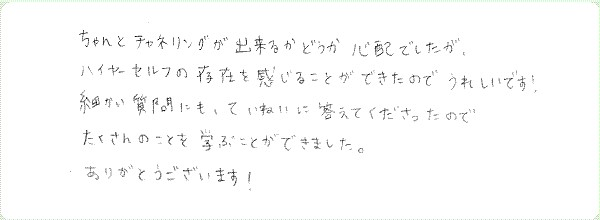 ちゃんとチャネリングが出来るかどうか心配でしたが、
ハイヤーセルフの存在を感じることができたのでうれしいです!
細かい質問にも、ていねいに答えてくださったので
たくさんのことを学ぶことができました。
ありがとうございます!